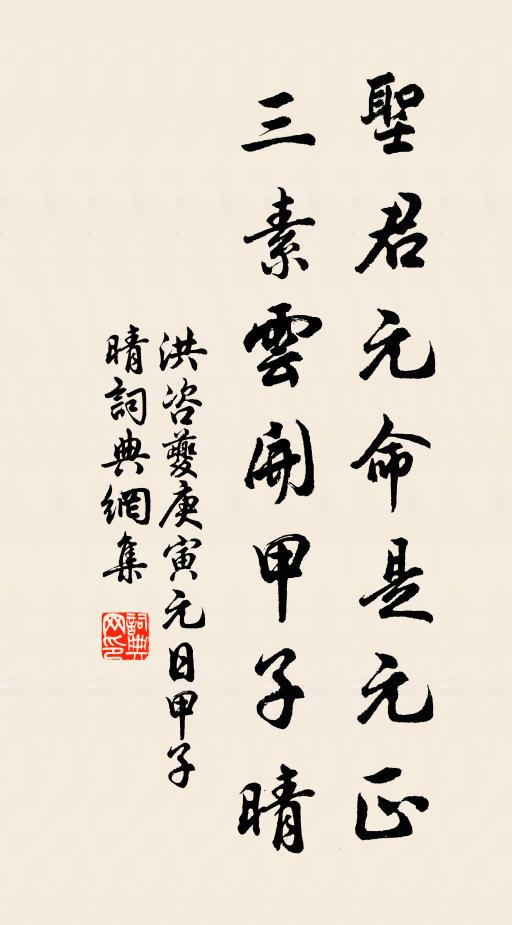 聖君元命是元正
三素雲開甲子晴
洪咨夔庚寅元日甲子
晴詞典網集
詞典网印